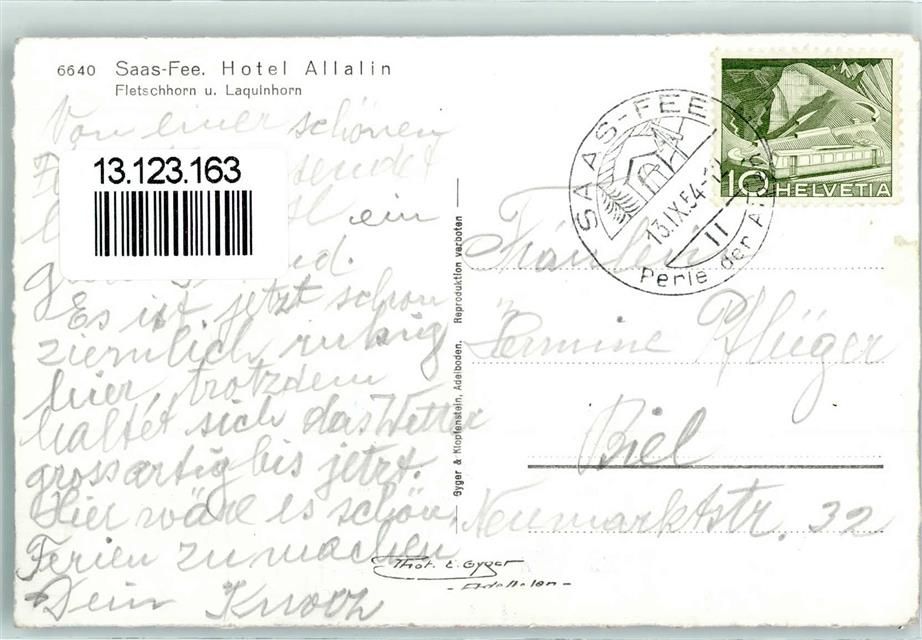 6640 Saas-Fee. Hotel Allalin
Fletschhorn u. Laquinhorn
Von einer schönen
sendet
ein
13.123.163
Es ist jetzt schon
ziemlich ruhig
hier, trotzdem
haltet sich das Wetter
grossartig bis jetzt.
Hier wäre es schön
Ferien zu machen
Dein
Gyger & Klopfenstein, Adelboden. Reproduktion verboten
SAAS-FEE
13.IX.54
II
Perle der Alpen
10 HELVETIA
Fräulein
Hermine Pflüger
Biel
Neumarktstr. 32
Phot. E. Gyger
- Adelboden -